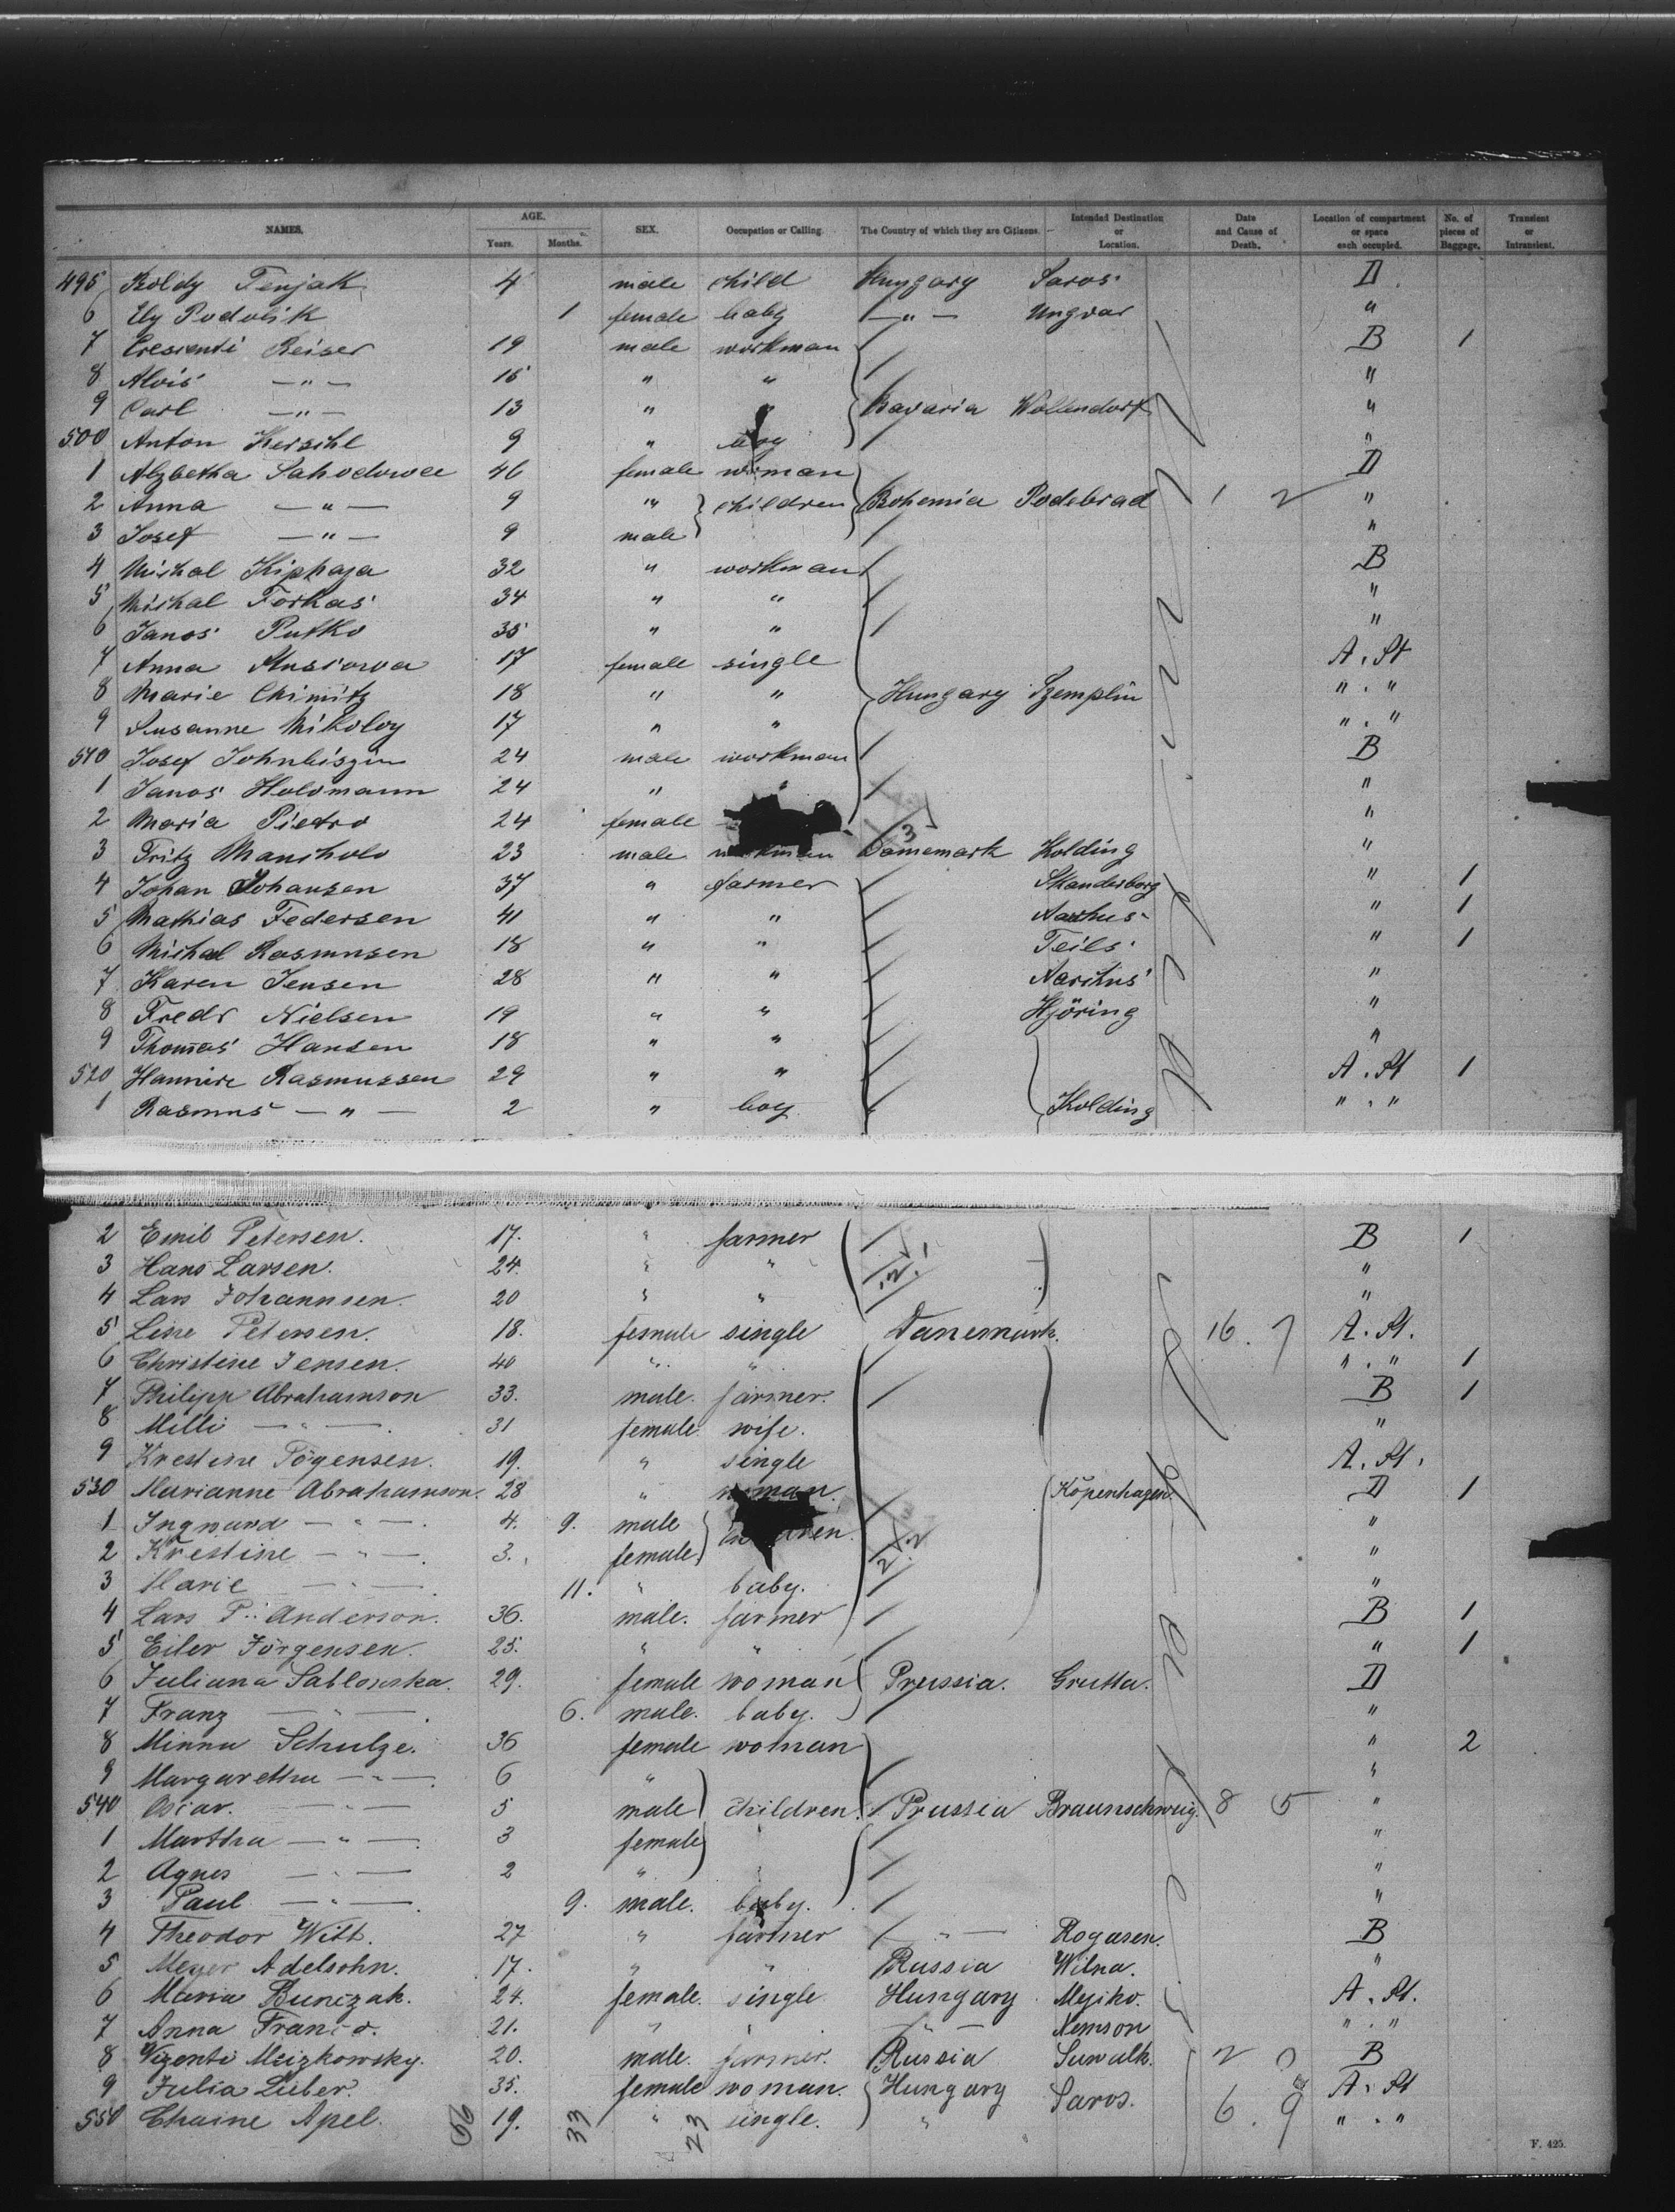 NAMES. AGE. Years. Months. SEX. Occupation or Calling. The Country of which they are Citizens. Intended Destination or Location. Date and Cause of Death. Location of compartment or space each occupied. No. of pieces of Baggage. Transient or Intransient.
495 Koldy Fenjak 4 male child Hungary Saros D
6 Ely Podolik 1 female baby — " — Ungvar "
7 Cresienti Reiser 19 male workman B 1
8 Alois — " — 16 " " "
9 Carl — " — 13 " " Bavaria Wollendorf "
500 Anton Herschl 9 " boy "
1 Alzbetha Sahodowa 46 female woman D
2 Anna — " — 9 " children Bohemia Podebrad 1 2 "
3 Josef — " — 9 male "
4 Michal Kiphaja 32 " workman B
5 Michal Forkas 34 " " "
6 Janos Putko 35 " " "
7 Anna 17 female single A. St
8 Marie Chimitz 18 " " Hungary Szemplin " . "
9 Susanne Mikoloy 17 " " " . "
510 Josef 24 male workman B
1 Janos Holomann 24 " "
2 Maria Pietro 24 female "
3 Fritz 23 male workman Danemark Kolding "
4 Johan Johansen 37 " farmer Skanderborg " 1
5 Mathias Federsen 41 " " Aarhus " 1
6 Michal Rasmusen 18 " " Teils " 1
7 Karen Jensen 28 " " Aarhus "
8 Fredr Nielsen 19 " " Hjöring "
9 Thomas Hansen 18 " " "
520 Hannire Rasmussen 29 " " A. St 1
1 Rasmus — " — 2 " boy Kolding " . "
2 Emil Petersen. 17. " farmer B 1
3 Hans Larsen. 24. " " "
4 Lars Johannsen. 20 " " "
5 Line Petersen. 18. female single Danemark. 16. 7 A. St.
6 Christine Jensen. 40 " " " . " 1
7 Philipp Abrahamson 33. male. farmer. B 1
8 Milli — " — 31 female wife. "
9 Krestine Jögensen. 19. " single A. St.
530 Marianne Abrahamson. 28 " woman. Köpenhagen D 1
1 Ingward — " — 4. 9. male children. "
2 Krestine — " — 3. female "
3 Marie — " — 11. " baby. "
4 Lars P. Anderson. 36. male. farmer B 1
5 Eiler Jörgensen. 25. " " " 1
6 Juliana Sablonska. 29. female woman Prussia. Grutta. D
7 Franz — " — 6. male. baby. "
8 Minna Schulze. 36 female woman " 2
9 Margaretha — " — 6 " "
540 Oscar. — " — 5 male children. Prussia Braunschweig. 8 5 "
1 Martha — " — 3 female "
2 Agnes — " — 2 " "
3 Paul — " — 9. male. baby. "
4 Theodor Witt. 27 " farmer — " — Rogasen. B
5 Meyer Adelsohn. 17. " " Russia Wilna. "
6 Maria Bunczak. 24. female. single Hungary Mejiko. A. St.
7 Anna 21. " " — " — Nemson " . "
8 Vizenti Meizkowsky. 20. male. farmer. Russia Suwalk. 2 B
9 Julia Lieber. 35. female woman. Hungary Saros. A. St
550 Chaine Apel. 19. " single. " 6. 9 " . "
66 33 23
F. 425.